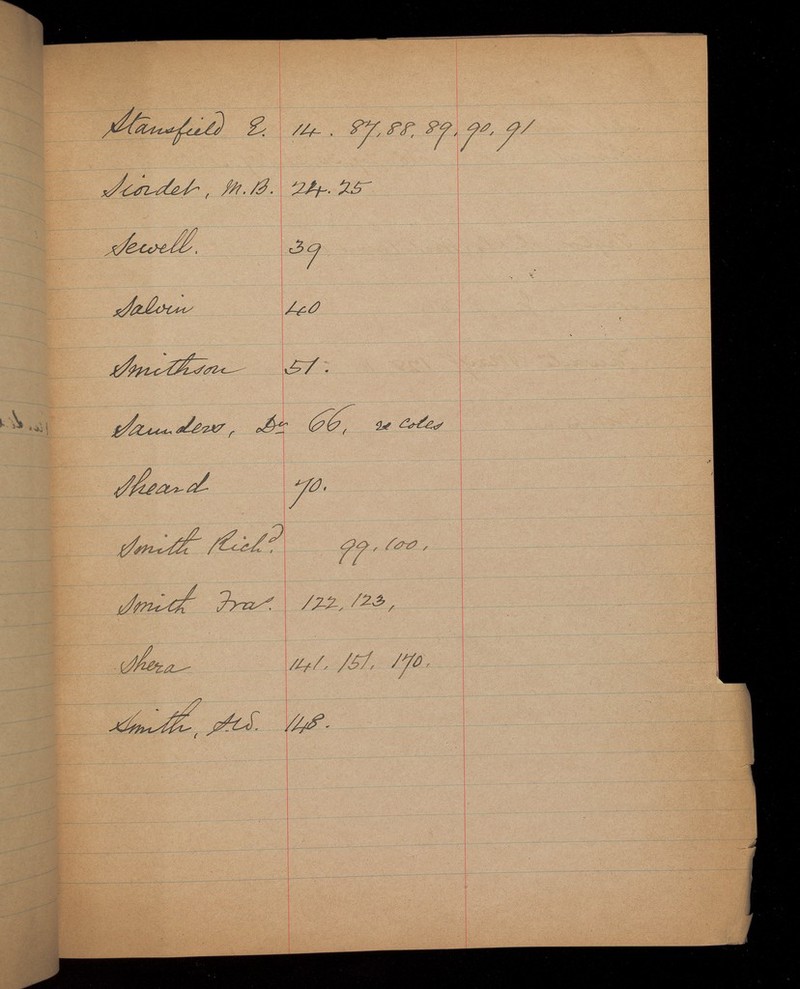 Stansfield E. 14. 87, 88, 89, 90, 91
Siordet, M.B. 24. 25
Sewell. 39
Salvin 40
Smithson 51.
Saunders, Dr 66, re Coles
Sheard 70.
Smith Richd. 99, 100,
Smith Fras. 122, 123,
Shera 141. 151. 170.
Smith, 148.